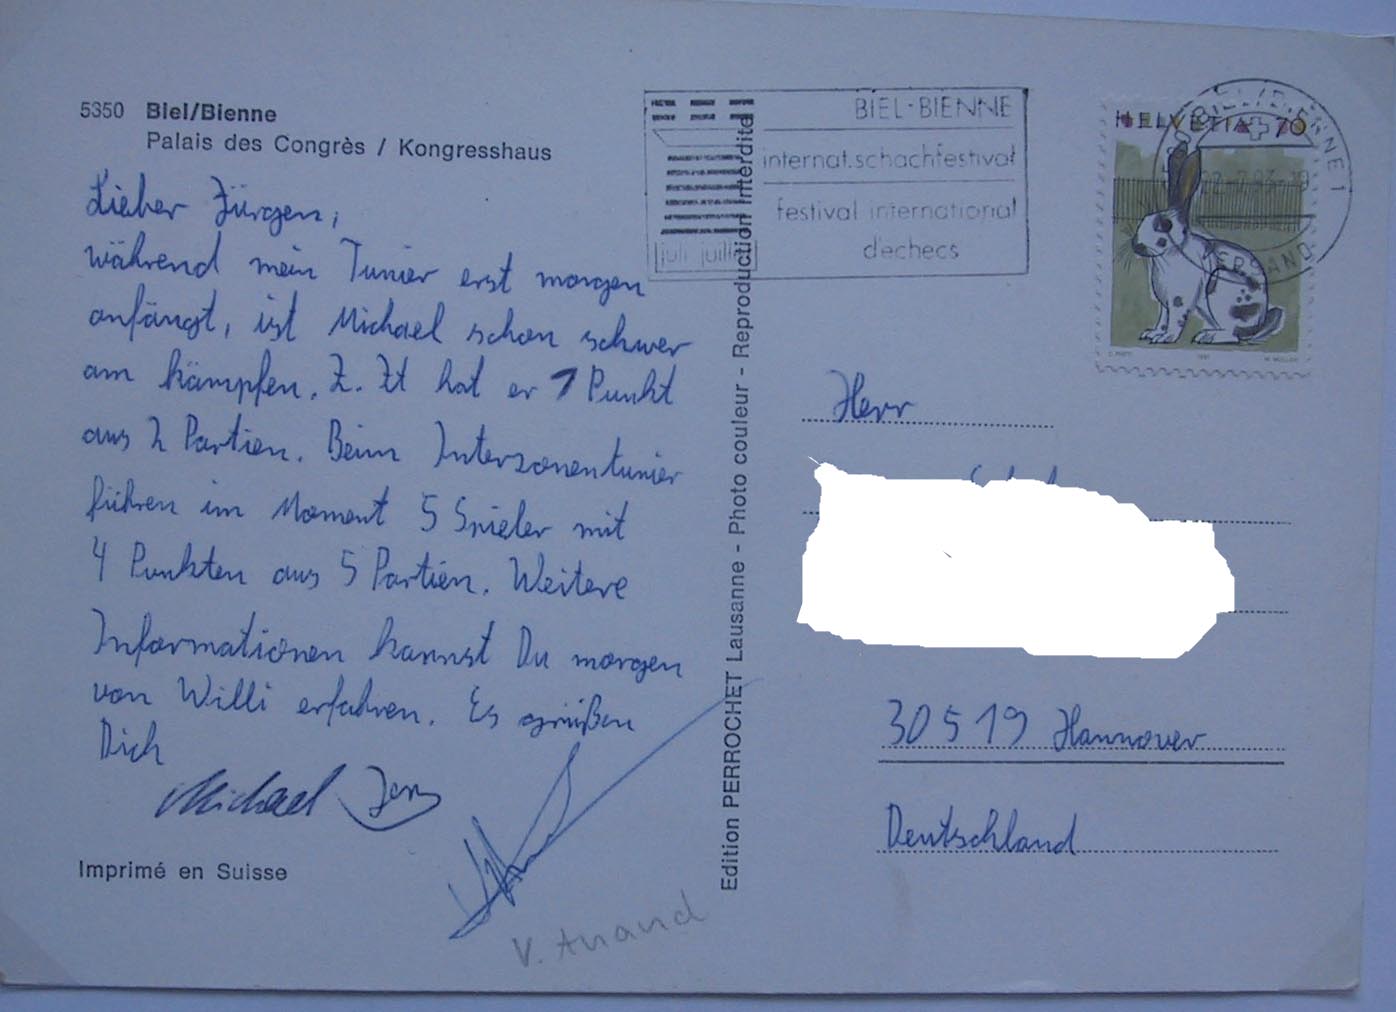 5350 Biel/Bienne
Palais des Congrès / Kongresshaus
Lieber Jürgen,
während mein Tunier erst morgen
anfängt, ist Michael schon schwer
am kämpfen. Z. Zt hat er 1 Punkt
aus 2 Partien. Beim Interzonentunier
führen im Moment 5 Spieler mit
4 Punkten aus 5 Partien. Weitere
Informationen kannst Du morgen
von Willi erfahren. Es grüßen
Dich
Michael Jens
V. Anand
Imprimé en Suisse
Edition PERROCHET Lausanne - Photo couleur - Reproduction interdite
BIEL-BIENNE
internat.schachfestival
festival international
d'echecs
juli juillet
HELVETIA 70
Herr
30519 Hannover
Deutschland